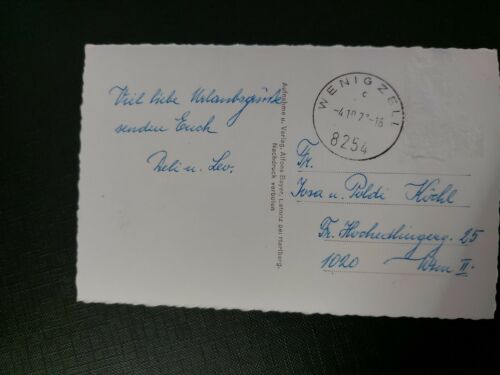 Viel liebe Urlaubsgrüße
senden Euch
Deli u. Leo.
Aufnahme u. Verlag, Alfons Bayer, Lafnitz bei Hartberg.
Nachdruck verboten
WENIGZELL
c
-4.10.7 -16
8254
Fr.
Josa u. Poldi Kohl
Fr. Hochedlingerg. 25
1020 Wien II.